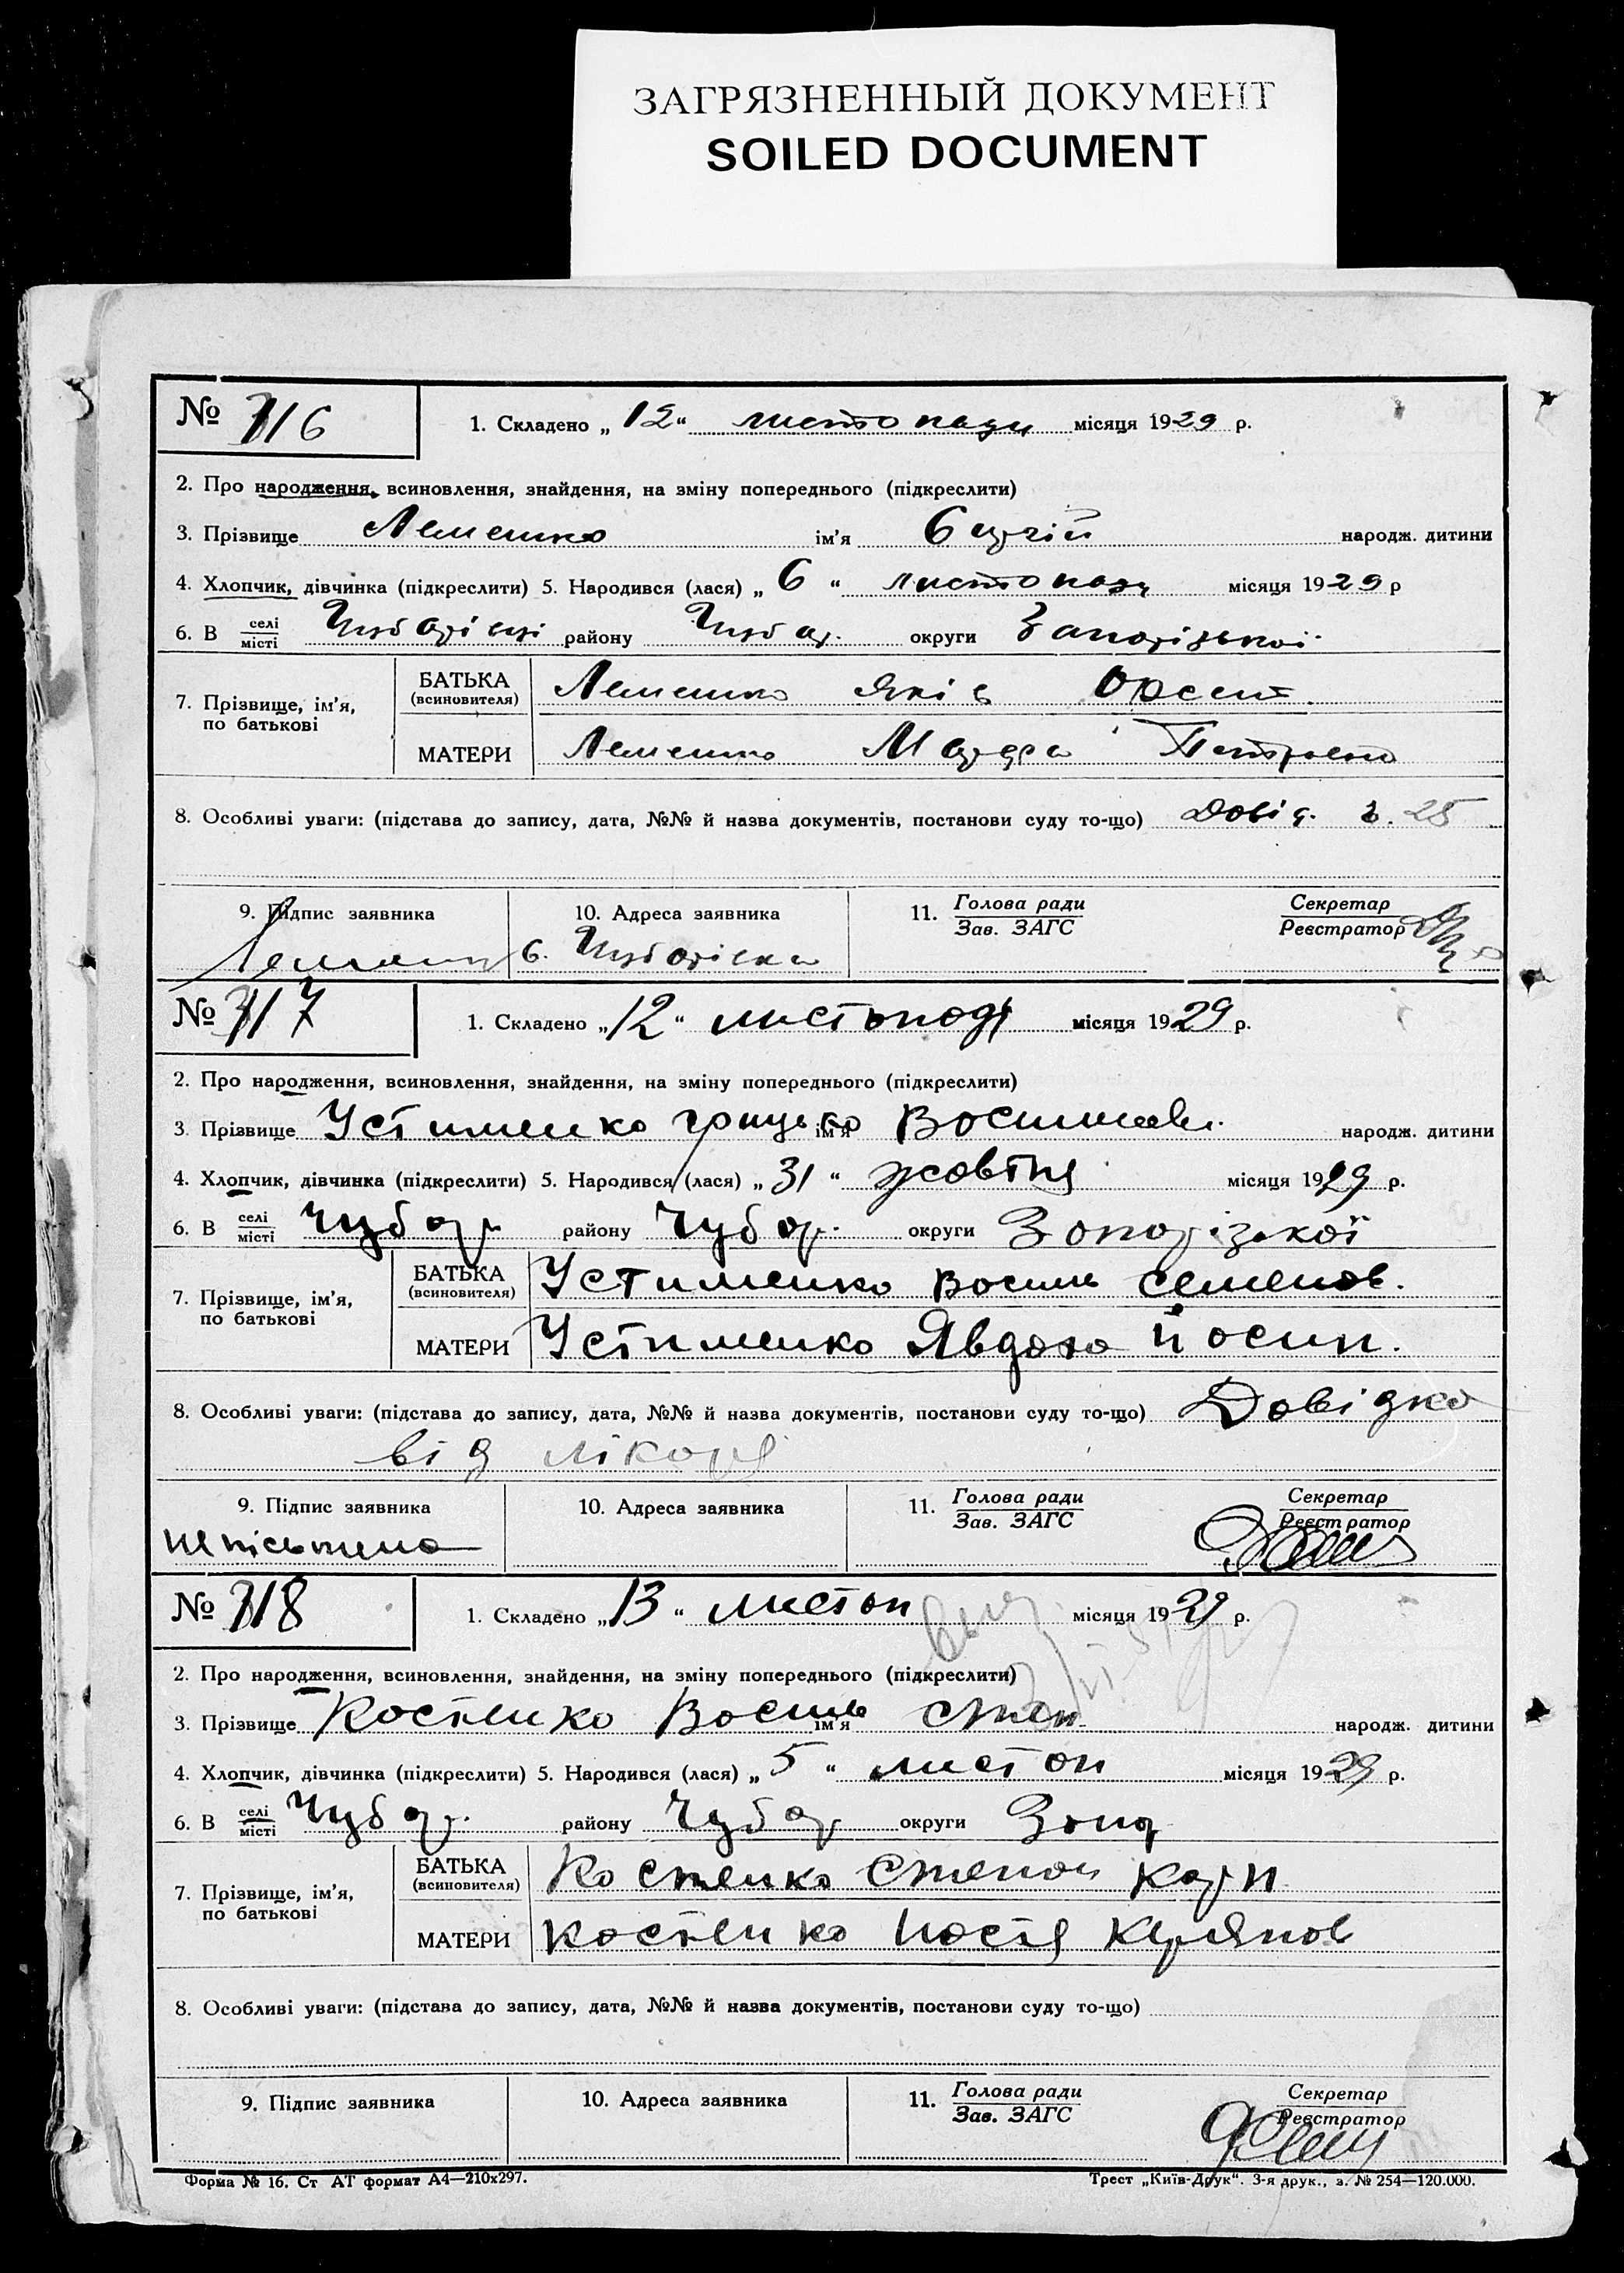 ЗАГРЯЗНЕННЫЙ ДОКУМЕНТ
SOILED DOCUMENT
№ 316
1. Складено „12“ листопаду місяця 1929 р.
2. Про народження, всиновлення, знайдення, на зміну попереднього (підкреслити)
3. Прізвище Лемешко ім'я народж. дитини
4. Хлопчик, дівчинка (підкреслити) 5. Народився (лася) „6“ листопаду місяця 1929 р
6. В селі/місті Чубарівці району Чубар. округи Запорізької
7. Прізвище, ім'я, по батькові
БАТЬКА (всиновителя) Лемешко Яків
МАТЕРИ Лемешко Марфа Петровна
8. Особливі уваги: (підстава до запису, дата, №№ й назва документів, постанови суду то-що) Довід. 25
9. Підпис заявника
10. Адреса заявника
11. Голова ради
Зав. ЗАГС
Секретар
Реєстратор
с. Чубарівка
№ 317
1. Складено „12“ листопаді місяця 1929 р.
2. Про народження, всиновлення, знайдення, на зміну попереднього (підкреслити)
3. Прізвище Устименко Грицько ім'я Васильев. народж. дитини
4. Хлопчик, дівчинка (підкреслити) 5. Народився (лася) „31“ жовтня місяця 1929 р.
6. В селі/місті Чубар району Чубар. округи Запорізкої
7. Прізвище, ім'я, по батькові
БАТЬКА (всиновителя) Устименко Василь Семенов.
МАТЕРИ Устименко Явдоха Йосип.
8. Особливі уваги: (підстава до запису, дата, №№ й назва документів, постанови суду то-що) Довідка
від лікаря
9. Підпис заявника
10. Адреса заявника
11. Голова ради
Зав. ЗАГС
Секретар
Реєстратор
непісьмена
№ 318
1. Складено „13“ листоп місяця 1929 р.
2. Про народження, всиновлення, знайдення, на зміну попереднього (підкреслити)
3. Прізвище Костенко Василь ім'я Степ. народж. дитини
4. Хлопчик, дівчинка (підкреслити) 5. Народився (лася) „5“ листоп місяця 1929 р.
6. В селі/місті Чубар. району Чубар округи Запор
7. Прізвище, ім'я, по батькові
БАТЬКА (всиновителя) Костенко Степан Карп
МАТЕРИ Костенко Настя
8. Особливі уваги: (підстава до запису, дата, №№ й назва документів, постанови суду то-що)
9. Підпис заявника
10. Адреса заявника
11. Голова ради
Зав. ЗАГС
Секретар
Реєстратор
Форма № 16. Ст АТ формат А4—210x297.
Трест „Київ-Друк“. 3-я друк., з. № 254—120.000.